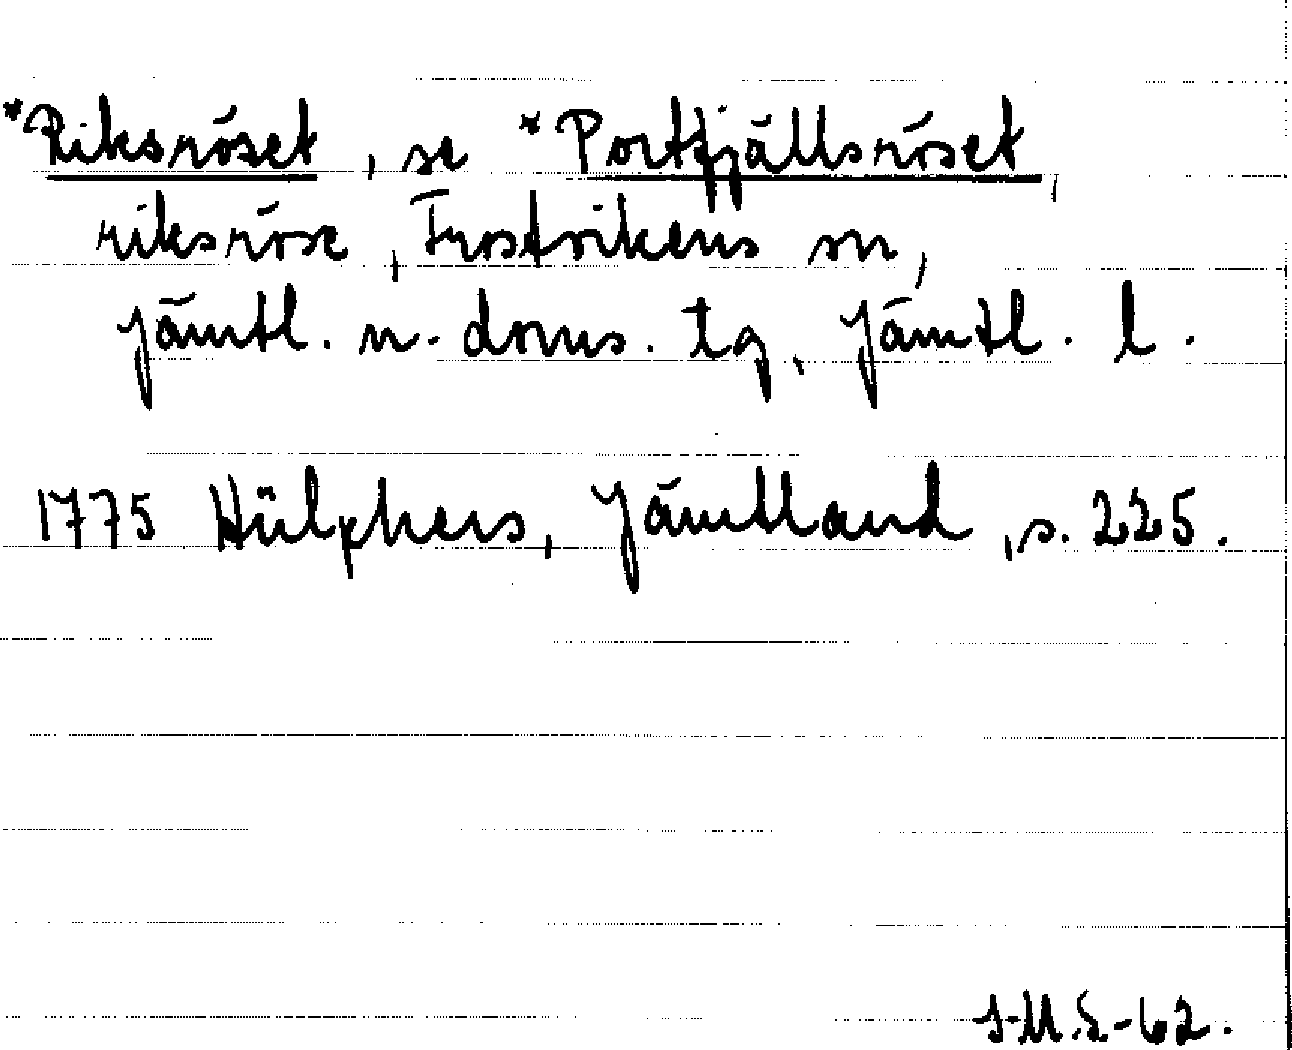 *Riksröset, se *Portfjällsröset,
riksröse, Frostvikens sn,
Jämtl. n. doms. tg, Jämtl. l.
1775 Hülphers, Jämtland, s. 225.
J-M.S-62.